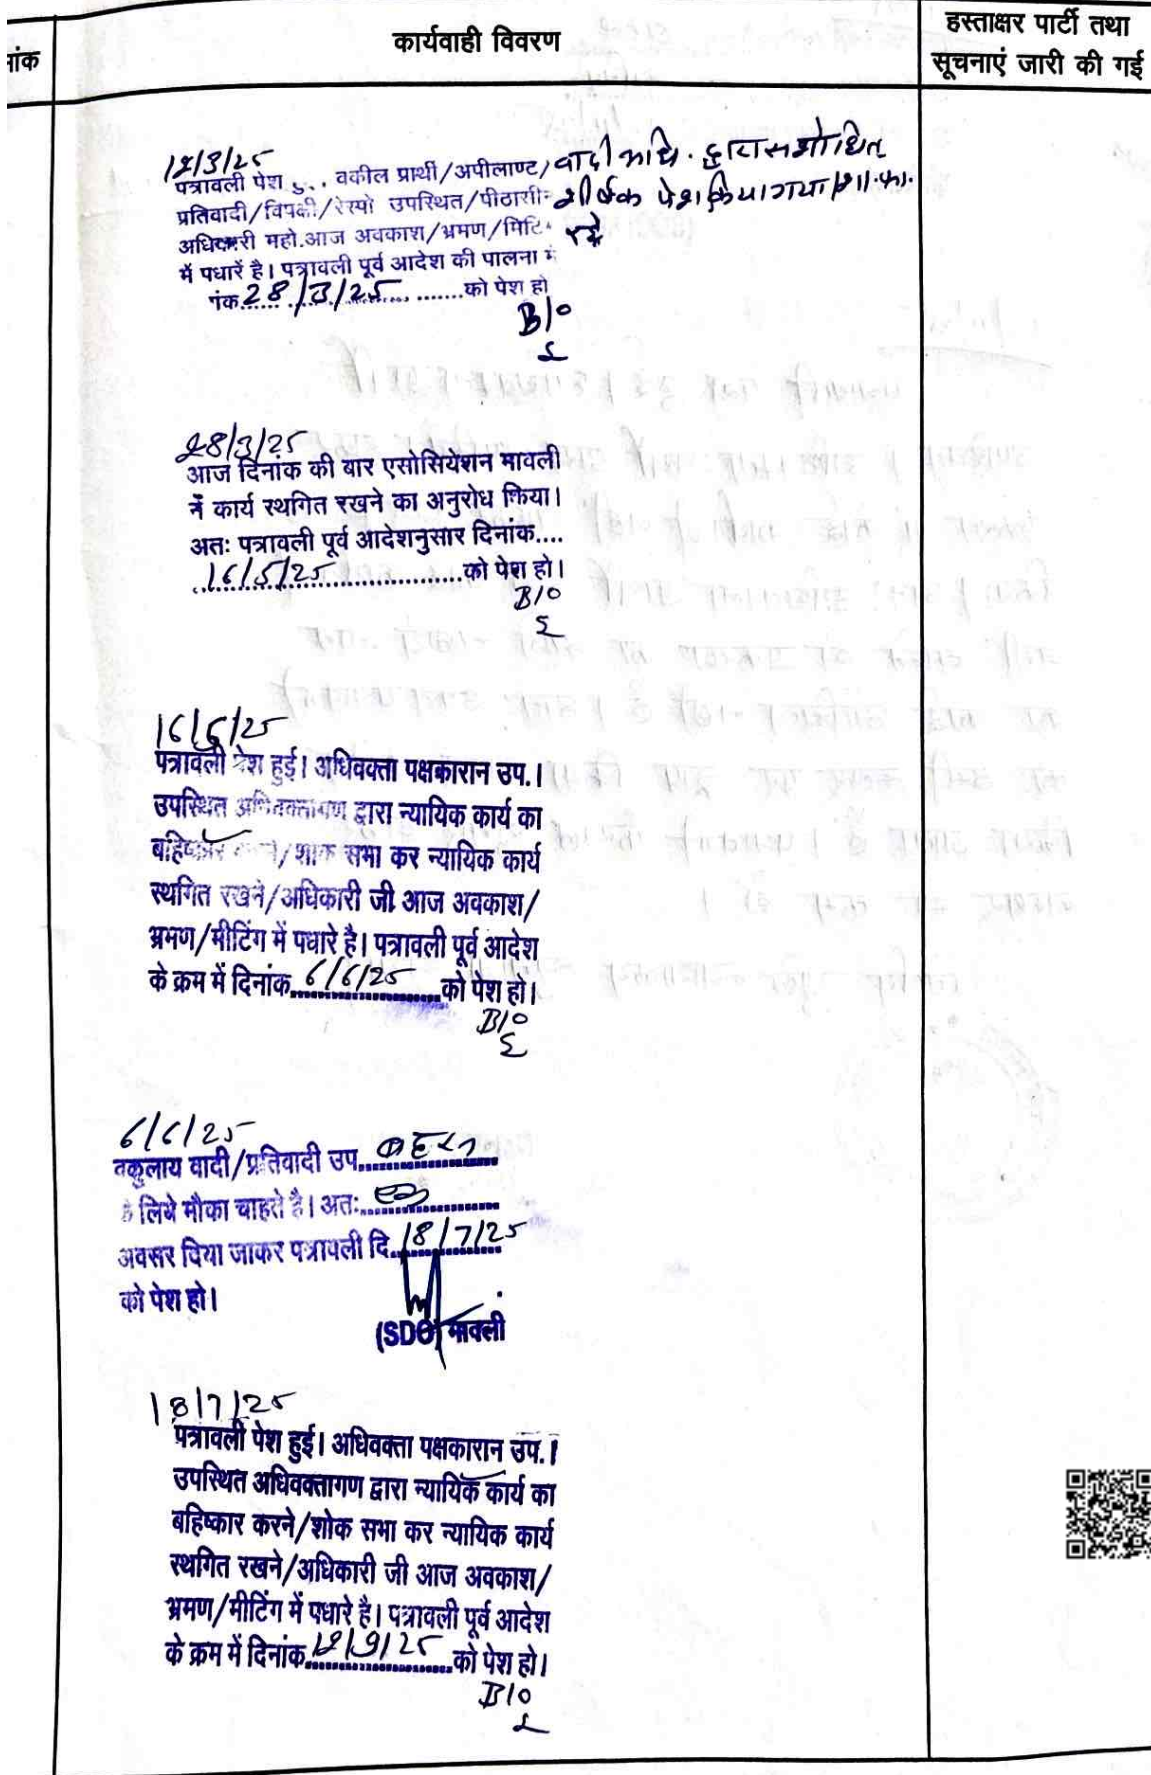 हस्ताक्षर पार्टी तथा
कार्यवाही विवरण
ांक
सूचनाएं जारी की गई
12/3/25
पत्रावली पेश हु... वकील प्रार्थी/अपीलाण्ट/ वादी अधि. द्वारा संशोधित
प्रतिवादी/विपक्षी/रेस्पो उपस्थित/पीठासीन शीर्षक पेश किया गया। शा.फा.
अधिकारी महो.आज अवकाश/भ्रमण/मिटिं रहे
में पधारें है। पत्रावली पूर्व आदेश की पालना में
नांक......28/3/25............को पेश हो
B/o
28/3/25
आज दिनांक की बार एसोसियेशन मावली
नें कार्य स्थगित रखने का अनुरोध किया।
अतः पत्रावली पूर्व आदेशनुसार दिनांक....
16/5/25..............को पेश हो।
B/o
16/5/25
पत्रावली पेश हुई। अधिवक्ता पक्षकारान उप.।
उपस्थित अधिवक्तागण द्वारा न्यायिक कार्य का
बहिष्कार करने/शोक सभा कर न्यायिक कार्य
स्थगित रखने/अधिकारी जी आज अवकाश/
भ्रमण/मीटिंग में पधारे है। पत्रावली पूर्व आदेश
के क्रम में दिनांक 6/6/25 को पेश हो।
B/o
6/6/25
वकुलाय वादी/प्रतिवादी उप..बहस
के लिये मौका चाहते है। अतः
अवसर दिया जाकर पत्रावली दि. 18/7/25
को पेश हो।
(SDO) मावली
18/7/25
पत्रावली पेश हुई। अधिवक्ता पक्षकारान उप.।
उपस्थित अधिवक्तागण द्वारा न्यायिक कार्य का
बहिष्कार करने/शोक सभा कर न्यायिक कार्य
स्थगित रखने/अधिकारी जी आज अवकाश/
भ्रमण/मीटिंग में पधारे है। पत्रावली पूर्व आदेश
के क्रम में दिनांक 12/9/25 को पेश हो।
B/o